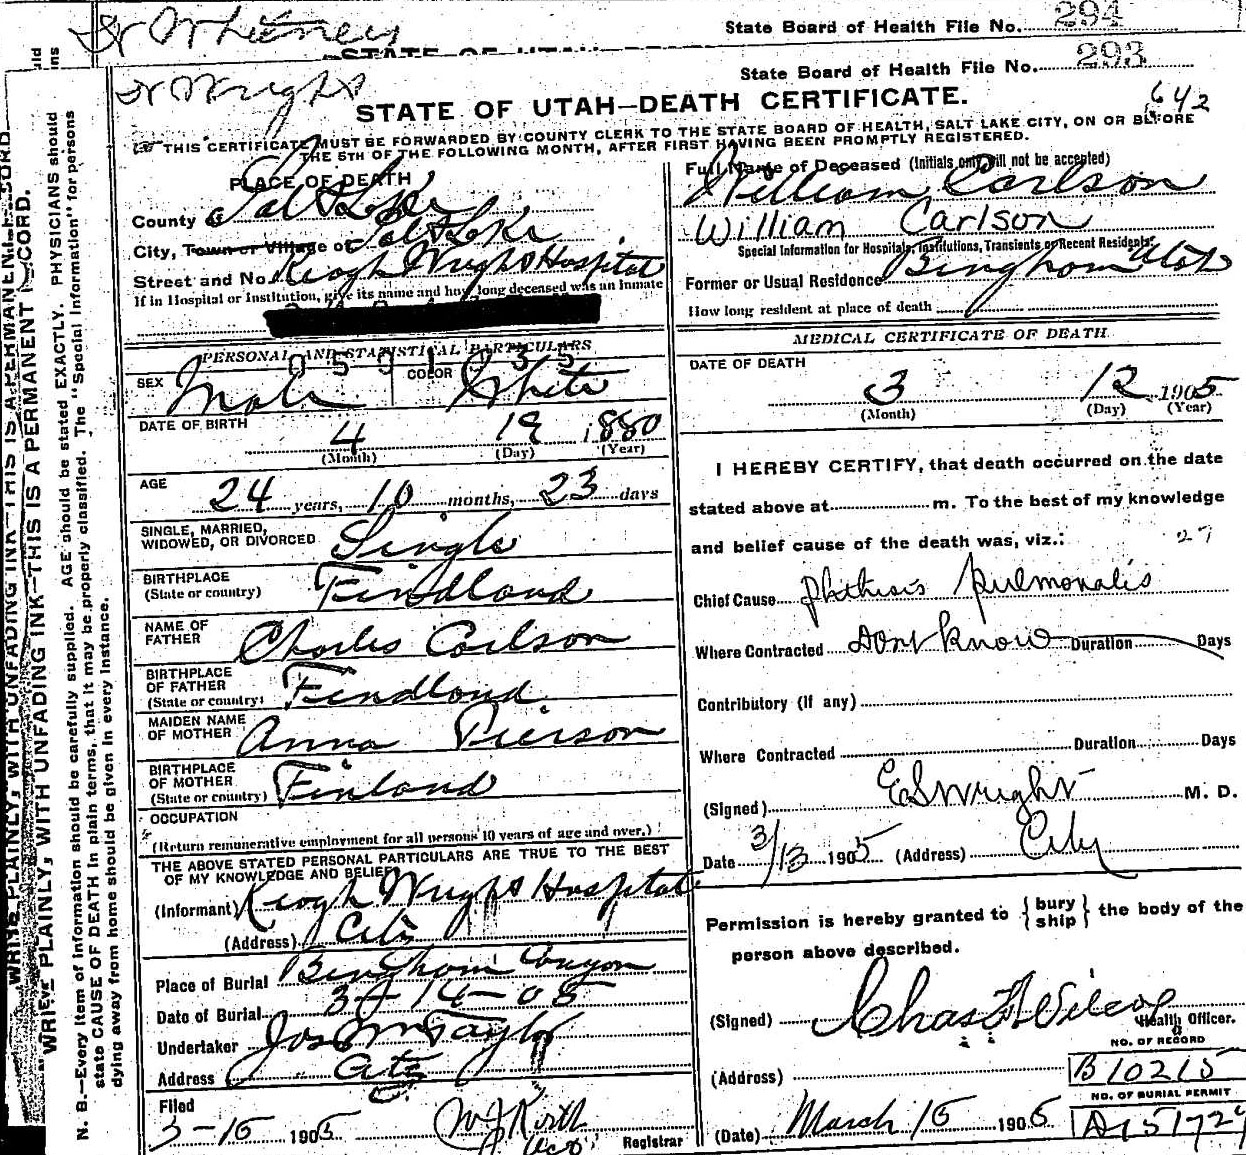 Dr Whitney
State Board of Health File No. 294
STATE OF UTAH
State Board of Health File No. 293
Dr Wright
STATE OF UTAH—DEATH CERTIFICATE.
642
THIS CERTIFICATE MUST BE FORWARDED BY COUNTY CLERK TO THE STATE BOARD OF HEALTH, SALT LAKE CITY, ON OR BEFORE
THE 5TH OF THE FOLLOWING MONTH, AFTER FIRST HAVING BEEN PROMPTLY REGISTERED.
WRITE PLAINLY, WITH UNFADING INK—THIS IS A PERMANENT RECORD.
WRITE PLAINLY, WITH UNFADING INK—THIS IS A PERMANENT RECORD.
N. B.—Every item of information should be carefully supplied. AGE should be stated EXACTLY. PHYSICIANS should
state CAUSE OF DEATH in plain terms, that it may be properly classified. The "Special Information" for persons
dying away from home should be given in every instance.
PLACE OF DEATH
County of Salt Lake
City, Town or Village of Salt Lake
Street and No. Keogh Wright Hospital
If in Hospital or Institution, give its name and how long deceased was an inmate
PERSONAL AND STATISTICAL PARTICULARS
0501035
SEX Male COLOR White
DATE OF BIRTH 4 19 1880
(Month) (Day) (Year)
AGE 24 years, 10 months, 23 days
SINGLE, MARRIED,
WIDOWED, OR DIVORCED Single
BIRTHPLACE
(State or country) Findland
NAME OF
FATHER Charles Carlson
BIRTHPLACE
OF FATHER
(State or country) Findland
MAIDEN NAME
OF MOTHER Anna Pierson
BIRTHPLACE
OF MOTHER
(State or country) Finland
OCCUPATION
(Return remunerative employment for all persons 10 years of age and over.)
THE ABOVE STATED PERSONAL PARTICULARS ARE TRUE TO THE BEST
OF MY KNOWLEDGE AND BELIEF
(Informant) Keogh Wright Hospital
(Address) City
Place of Burial Bingham Canyon
Date of Burial 3-14-05
Undertaker Jos Wm Taylor
Address City
Filed
3-15 1905
Registrar
Full Name of Deceased (Initials only will not be accepted)
William Carlson
William Carlson
Special Information for Hospitals, Institutions, Transients or Recent Residents.
Former or Usual Residence Bingham Utah
How long resident at place of death
MEDICAL CERTIFICATE OF DEATH
DATE OF DEATH
3 12 1905
(Month) (Day) (Year)
I HEREBY CERTIFY, that death occurred on the date
stated above at m. To the best of my knowledge
and belief cause of the death was, viz.: 27
Chief Cause Phthisis Pulmonalis
Where Contracted Dont Know Duration Days
Contributory (if any)
Where Contracted Duration Days
(Signed) E S Wright M. D.
Date 3/13 1905 (Address) City
Permission is hereby granted to { bury ship } the body of the
person above described.
(Signed) Chas F Wilcox
Health Officer.
NO. OF RECORD
B10215
(Address)
NO. OF BURIAL PERMIT
(Date) March 15 1905